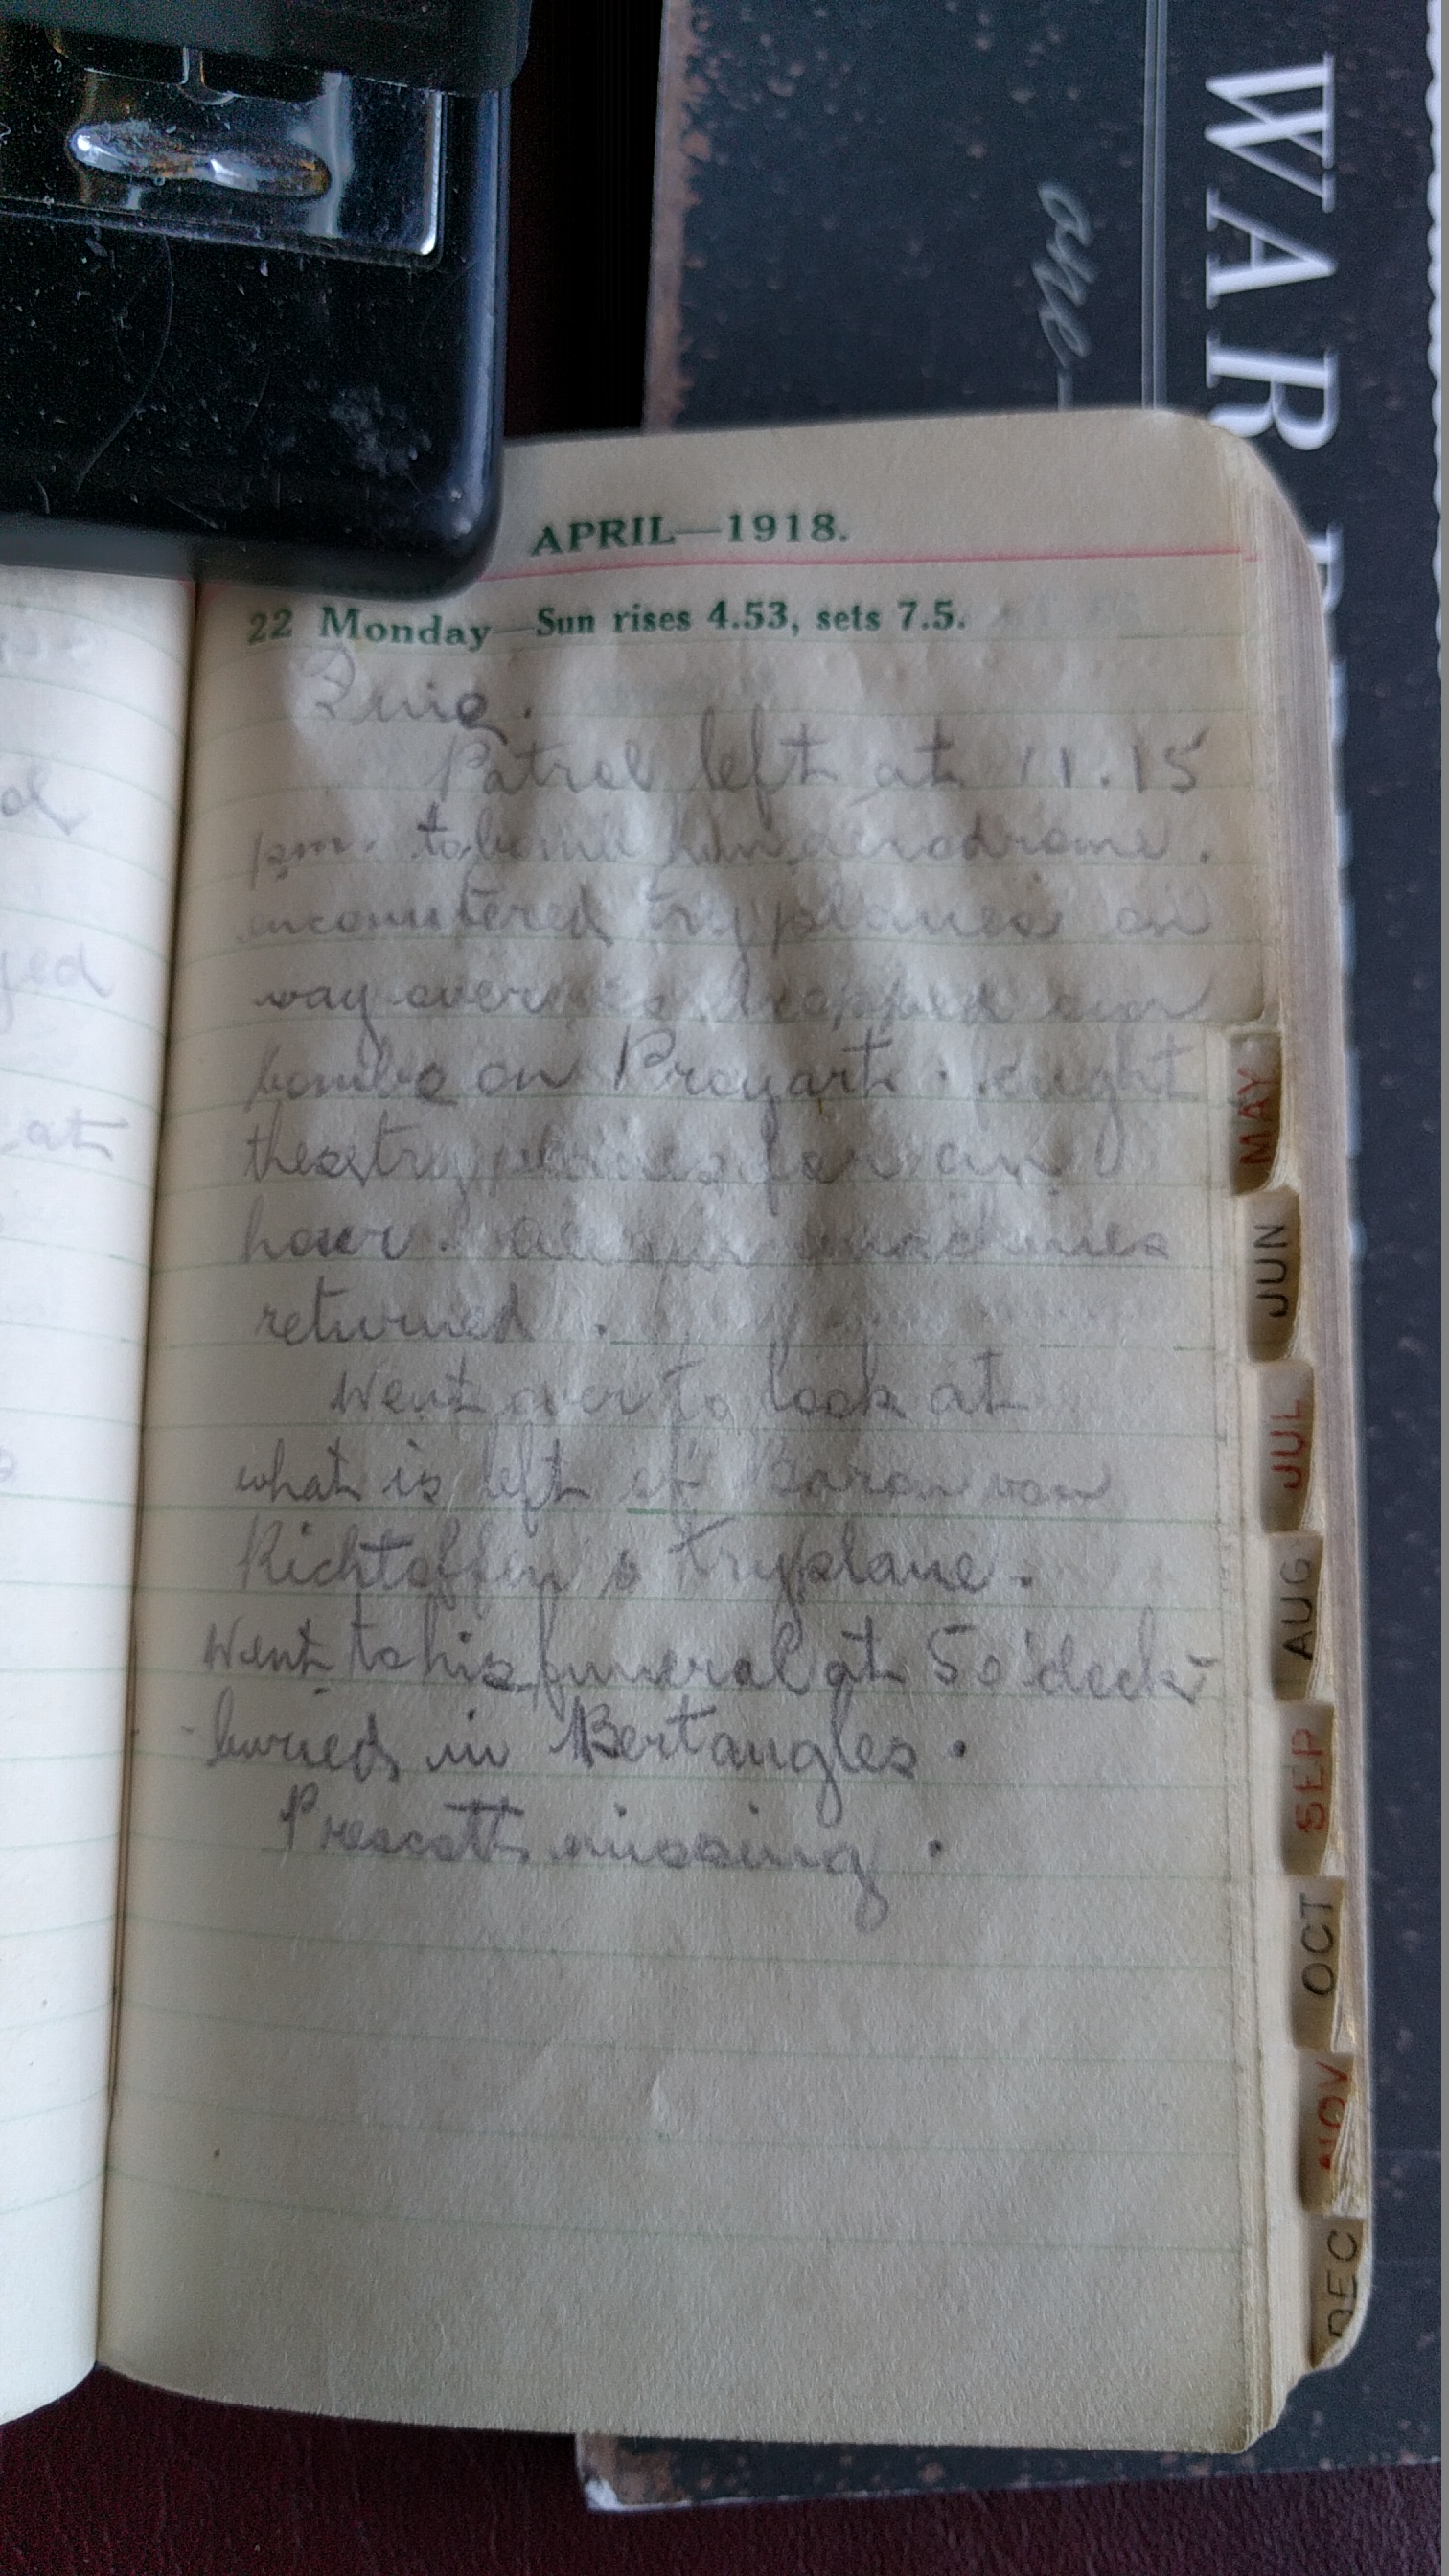 WAR
one
APRIL—1918.
22 Monday—Sun rises 4.53, sets 7.5.
Patrol left at 11.15
pm. to bomb hun aerodrome.
encountered tryplanes on
way over so dropped our
bombs on Proyart. Fought
these tryplanes for an
hour. All our machines
returned.
Went over to look at
what is left of Baron von
Richtoffen's tryplane.
Went to his funeral at 5 o'clock
buried in Bertangles.
Prescott missing.
MAY
JUN
JUL
AUG
SEP
OCT
NOV
DEC
at